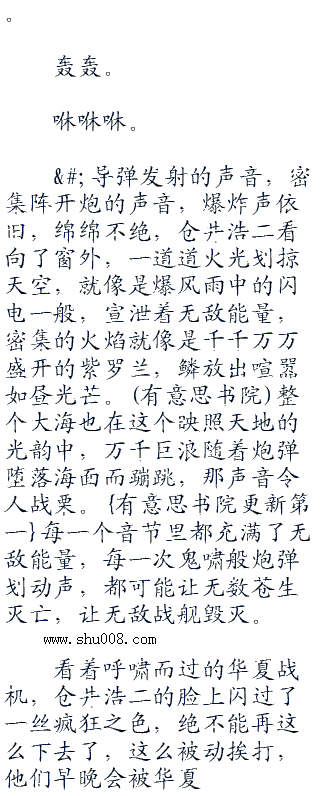 。
轰轰。
咻咻咻。
&#;导弹发射的声音，密
集阵开炮的声音，爆炸声依
旧，绵绵不绝，仓井浩二看
向了窗外，一道道火光划掠
天空，就像是爆风雨中的闪
电一般，宣泄着无敌能量，
密集的火焰就像是千千万万
盛开的紫罗兰，鳞放出喧嚣
如昼光芒。(有意思书院)整
个大海也在这个映照天地的
光韵中，万千巨浪随着炮弹
堕落海面而蹦跳，那声音令
人战栗。{有意思书院更新第
一}每一个音节里都充满了无
敌能量，每一次鬼啸般炮弹
划动声，都可能让无数苍生
灭亡，让无敌战舰毁灭。
www.shu008.com
看着呼啸而过的华夏战
机，仓井浩二的脸上闪过了
一丝疯狂之色，绝不能再这
么下去了，这么被动挨打，
他们早晚会被华夏